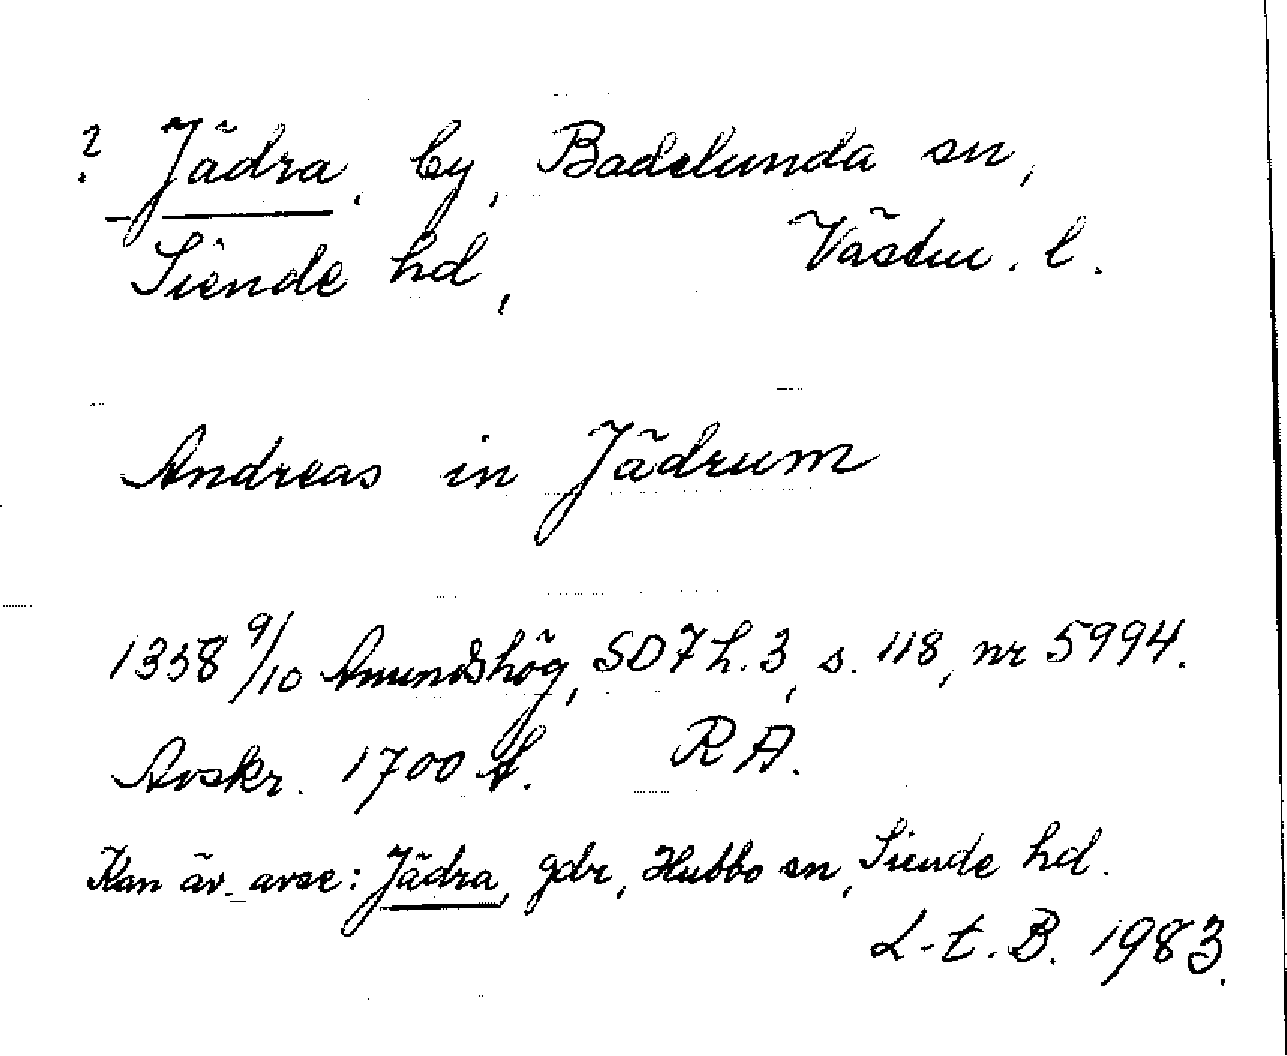 ? Jädra, by, Badelunda sn,
Siende hd, Västm. l.
Andreas in Jädrum
1358 9/10 Amundshög, SD 7 h. 3, s. 118, nr 5994.
Avskr. 1700 t. RA.
Kan äv. avse: Jädra, gdr, Hubbo sn, Siende hd.
L-t. B. 1983.